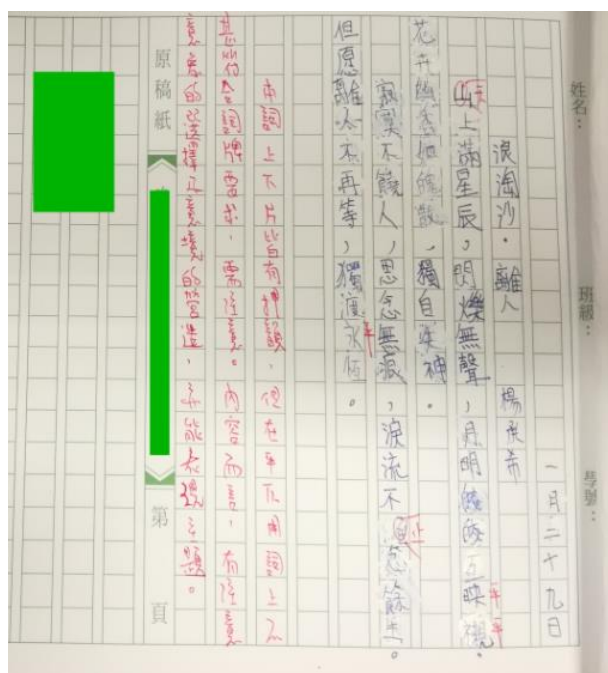 姓名：
班級：
學號：
一月二十九日
浪淘沙．離人
楊
山上滿星辰，閃爍無聲，月明皎皎互映襯。
平平
花卉幽香如飄散，獨自失神。
寂寞不饒人，思念無痕，淚流不忍念餘生。
止
但愿離人不再等，獨渡永恆。
平
本詞上下片皆有押韻，但在平仄用詞上不
甚符合詞牌要求，需注意。內容而言，有注意
意象的選擇及意境的營造，亦能表現主題。
原稿紙
第 頁